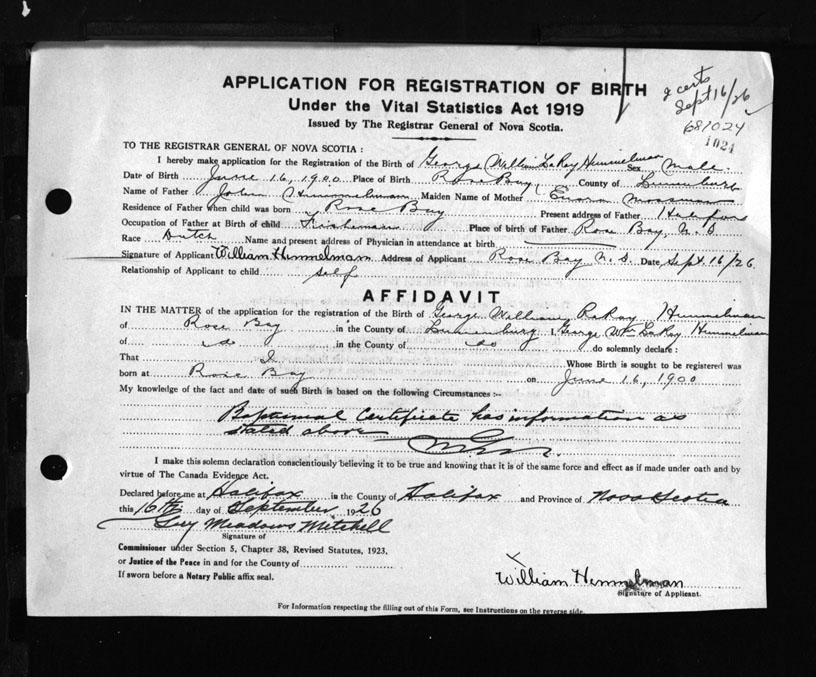 APPLICATION FOR REGISTRATION OF BIRTH
Under the Vital Statistics Act 1919
Issued by The Registrar General of Nova Scotia.
2 certs
Sept 16/26
681024
1024
TO THE REGISTRAR GENERAL OF NOVA SCOTIA :
I hereby make application for the Registration of the Birth of George William LaRay Himmelman Sex Male
Date of Birth June 16, 1900 Place of Birth Rose Bay County of Lunenburg
Name of Father John Himmelman Maiden Name of Mother Mossman
Residence of Father when child was born Rose Bay Present address of Father
Occupation of Father at Birth of child Fisherman Place of birth of Father Rose Bay, N.S.
Race Dutch Name and present address of Physician in attendance at birth
Signature of Applicant William Himmelman Address of Applicant Rose Bay N.S. Date Sept. 16/26.
Relationship of Applicant to child self
AFFIDAVIT
IN THE MATTER of the application for the registration of the Birth of George William RaRay Himmelman
of Rose Bay in the County of Lunenburg I, George Wm LaRay Himmelman
of do in the County of do do solemnly declare :
That I Whose Birth is sought to be registered was
born at Rose Bay on June 16, 1900
My knowledge of the fact and date of such Birth is based on the following Circumstances :-
Baptismal Certificate has information as
stated above
I make this solemn declaration conscientiously believing it to be true and knowing that it is of the same force and effect as if made under oath and by
virtue of The Canada Evidence Act.
Declared before me at Halifax in the County of Halifax and Province of Nova Scotia
this 16th day of September 1926
Guy Meadows Mitchell
Signature of
Commissioner under Section 5, Chapter 38, Revised Statutes, 1923.
or Justice of the Peace in and for the County of
If sworn before a Notary Public affix seal.
William Himmelman
Signature of Applicant.
For Information respecting the filling out of this Form, see Instructions on the reverse side.